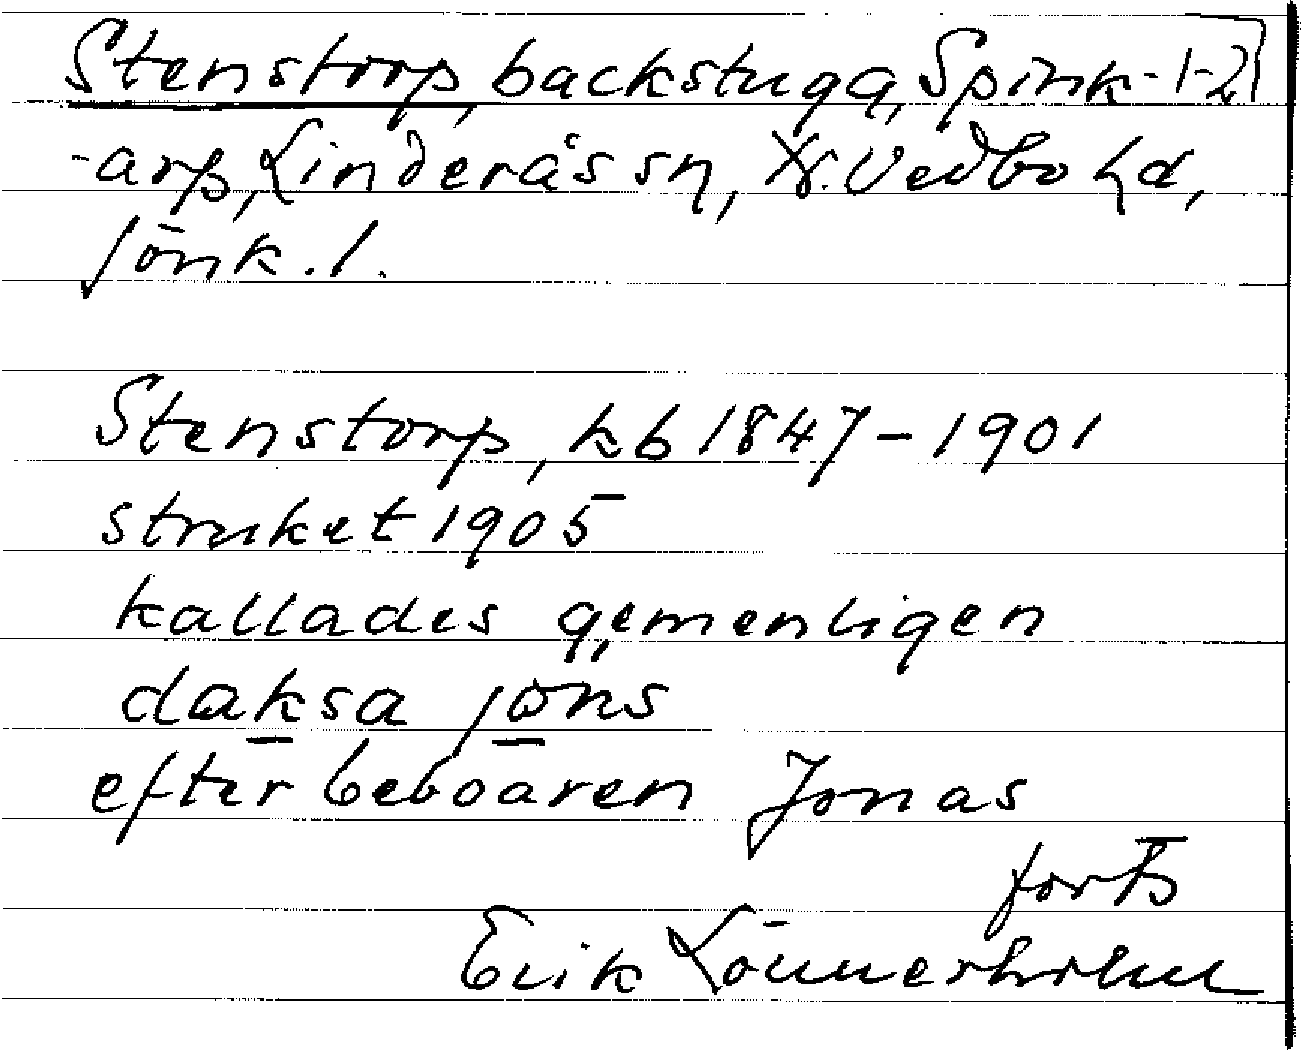 Stenstorp, backstuga, Spink- 1-2
-arp, Linderås sn, N. Vedbo hd,
Jönk. l.
Stenstorp, kb 1847-1901
struket 1905
kallades gemenligen
daksa jöns
efter beboaren Jonas
forts
Erik Lönnerholm